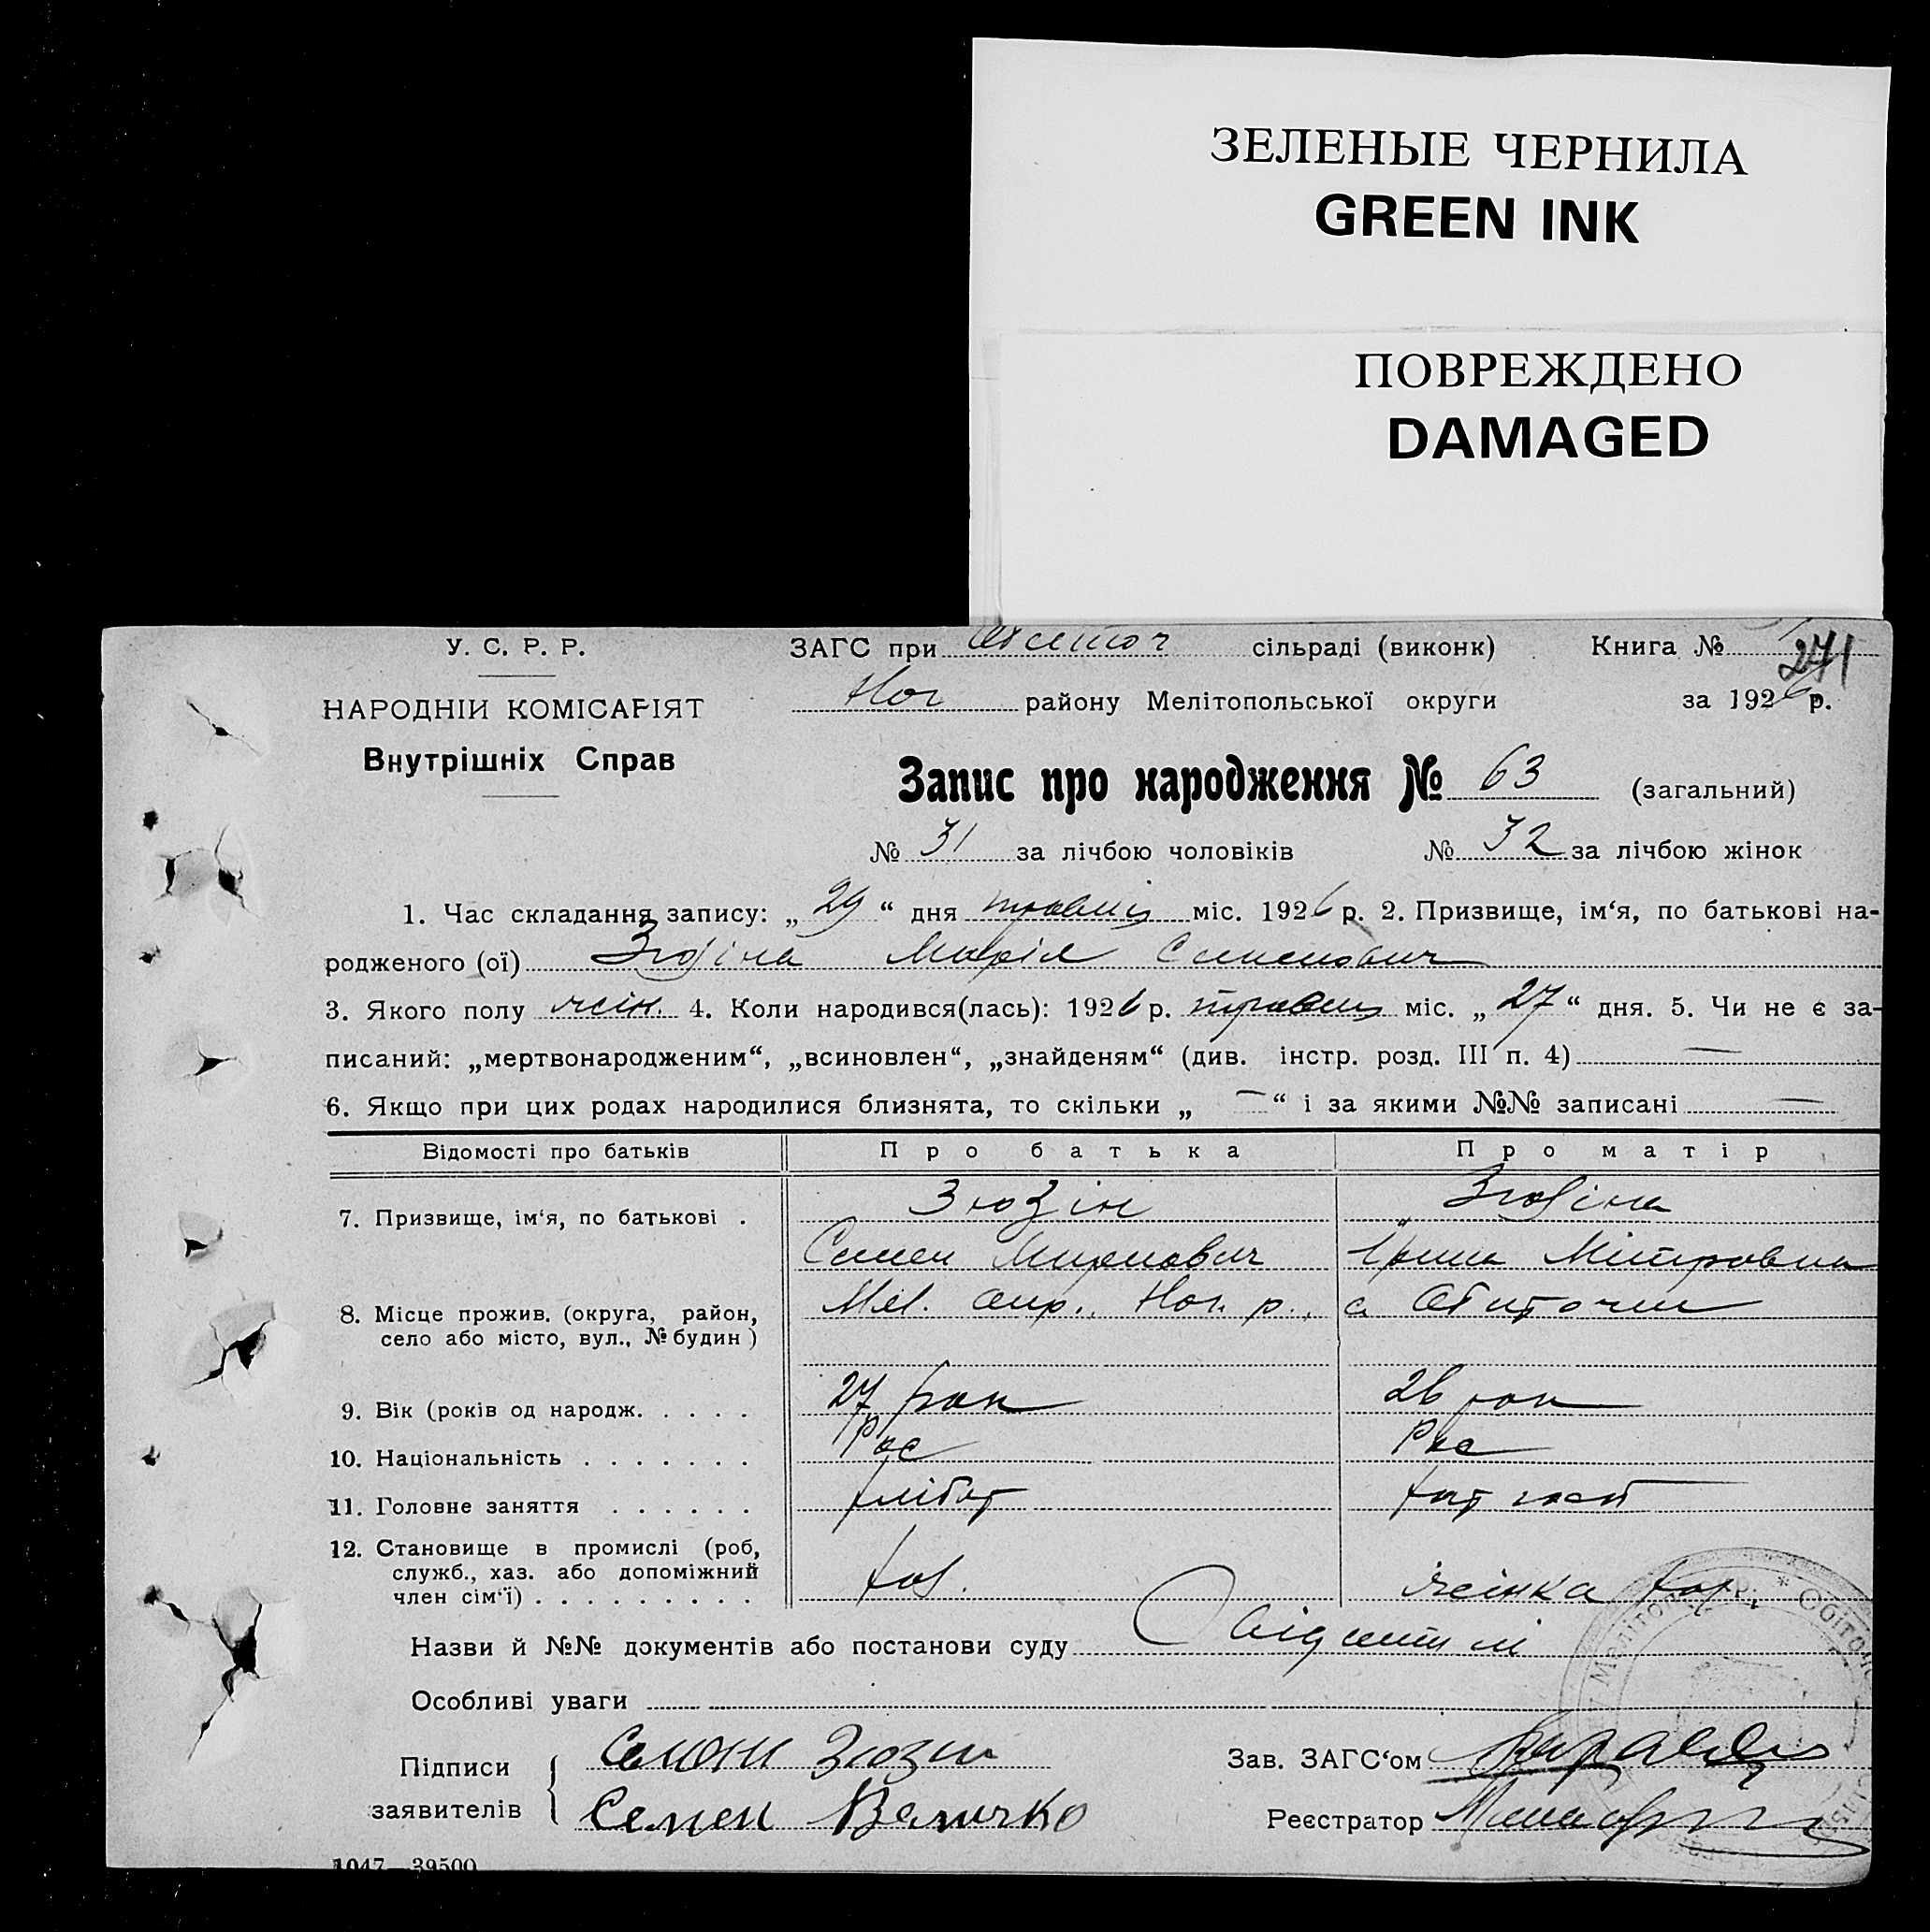 ЗЕЛЕНЫЕ ЧЕРНИЛА
GREEN INK
ПОВРЕЖДЕНО
DAMAGED
У. С. Р. Р.
ЗАГС при сільраді (виконк) Книга №
271
НАРОДНІЙ КОМІСАРІЯТ
Ног району Мелітопольської округи за 1926 р.
Внутрішніх Справ
Запис про народження № 63 (загальний)
№ 31 за лічбою чоловіків № 32 за лічбою жінок
1. Час складання запису: „29“ дня травня міс. 1926 р. 2. Призвище, ім‘я, по батькові на-
родженого (ої) Зюзіна Марія Семенович
3. Якого полу жін. 4. Коли народився(лась): 1926 р. травня міс. „27“ дня. 5. Чи не є за-
писаний: „мертвонародженим“, „всиновлен“, „знайденям“ (див. інстр. розд. III п. 4) —
6. Якщо при цих родах народилися близнята, то скільки „—“ і за якими №№ записані —
Відомості про батьків Про батька Про матір
7. Призвище, ім‘я, по батькові . Зюзін Зюзіна
Семен Миронович Мітровна
8. Місце прожив. (округа, район, Мел. окр., Ног. р., с. Обиточне
село або місто, вул., № будин )
9. Вік (років од народж. . . . . 27 рок 26 рок
10. Національність . . . . . . . Рос Рос
11. Головне заняття . . . . . . хлібор хат госп
12. Становище в промислі (роб,
служб., хаз. або допоміжний
член сім‘ї) . . . . . . . . . хаз. жінка хаз.
Назви й №№ документів або постанови суду
Особливі уваги
Підписи Семен Зюзин Зав. ЗАГС‘ом
заявителів Семен Величко Реєстратор
1047—39500